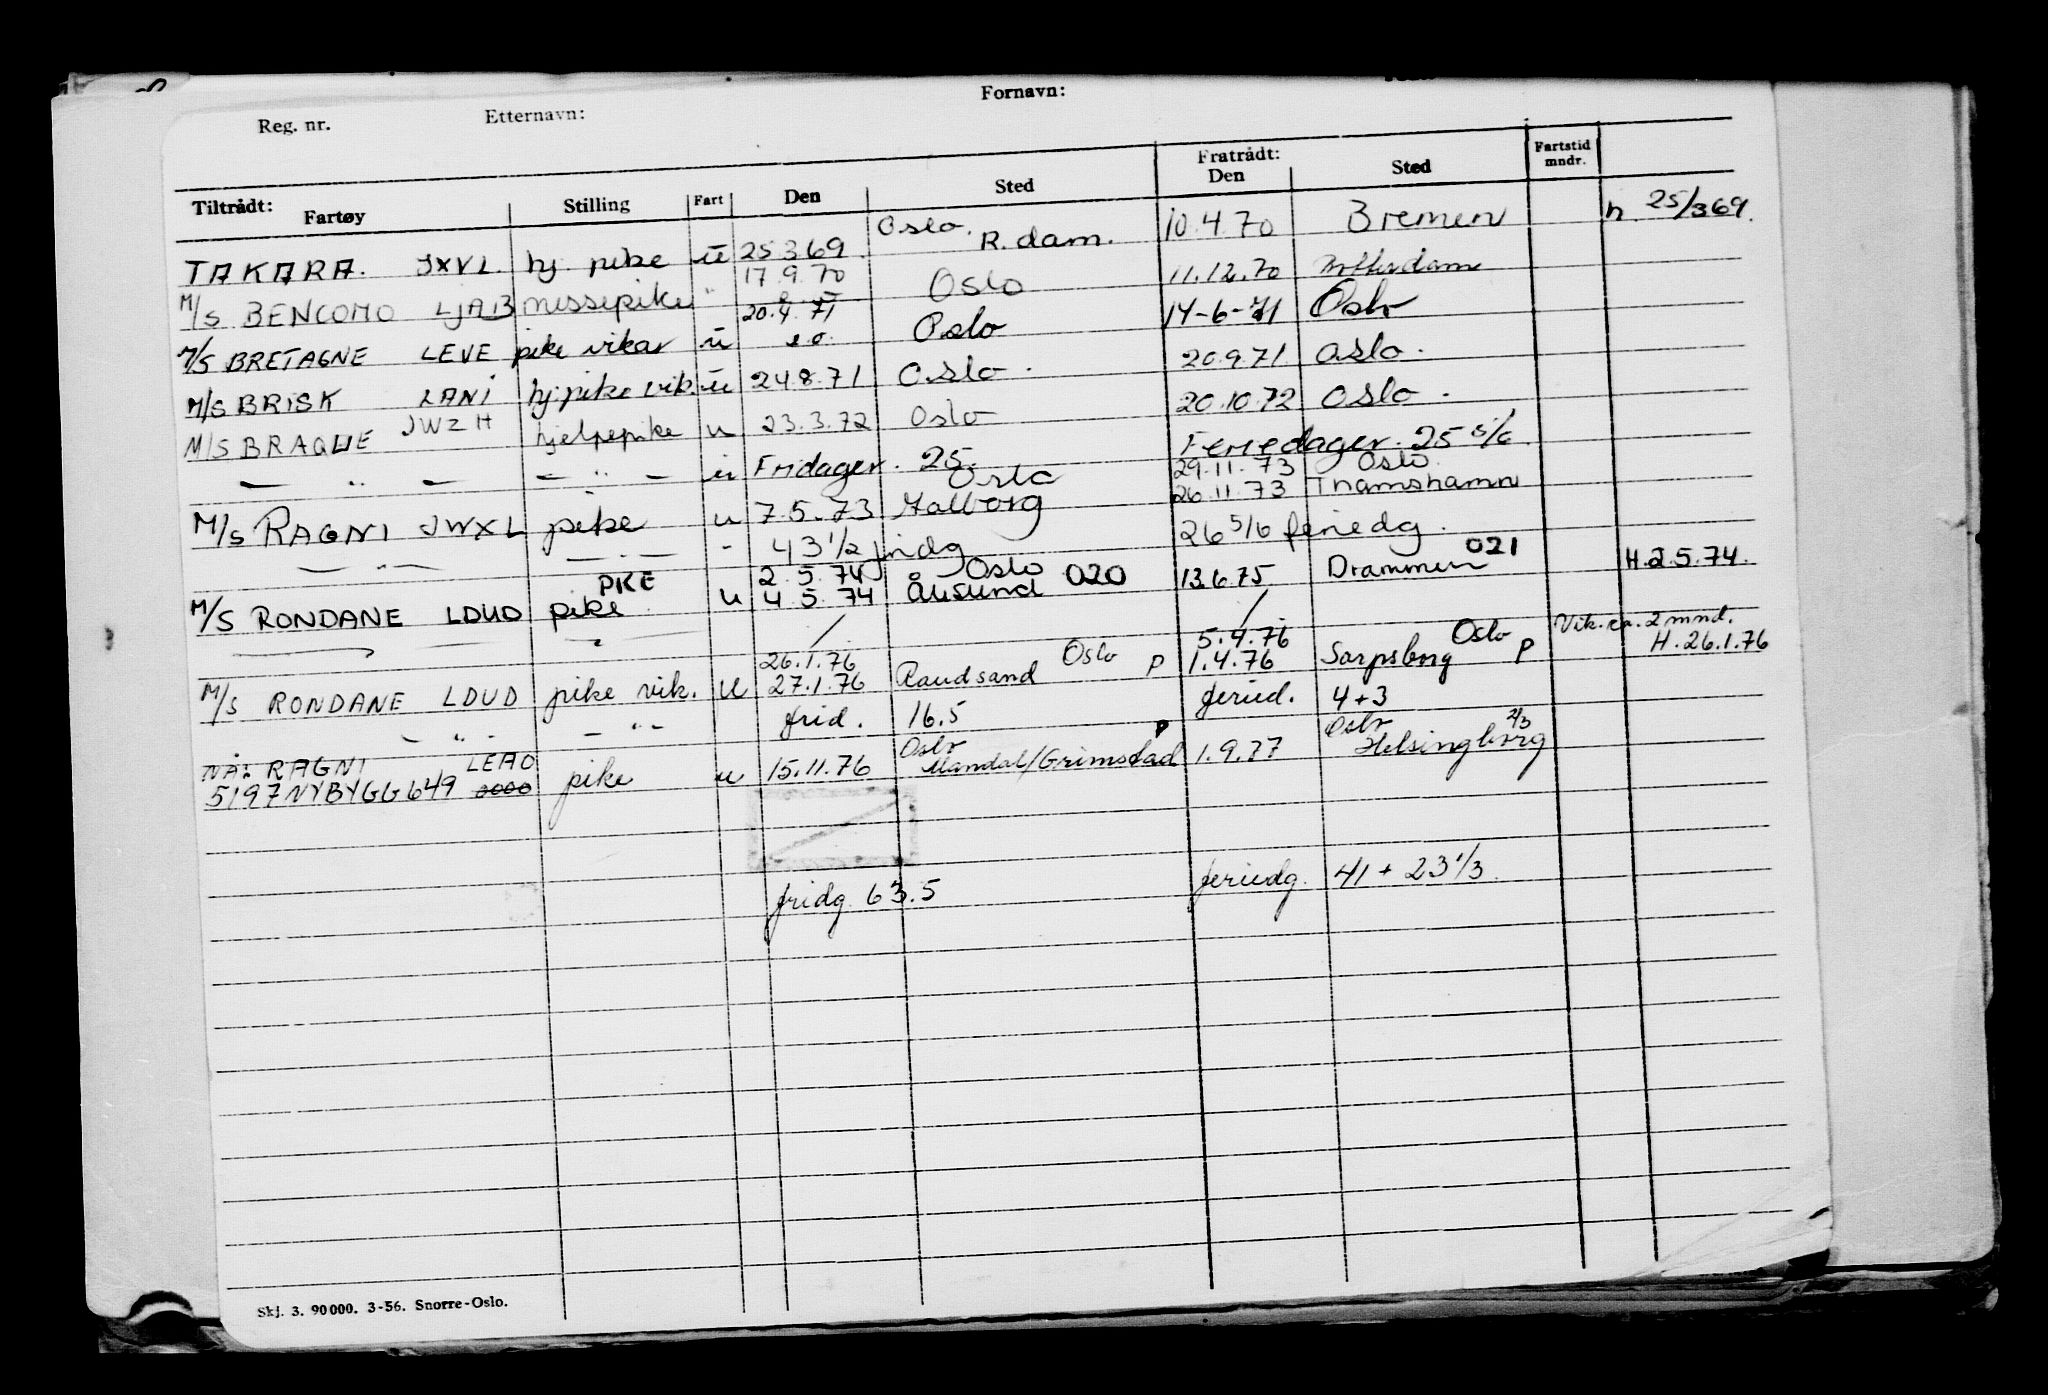 Reg. nr. Etternavn: Fornavn:
Tiltrådt: Fartøy Stilling Fart Den Sted Fratrådt: Den Sted Fartstid mndr.
TAKARA. JXVL. hj. pike u 25369. Oslo. R. dam. 10.4.70 Bremen h 25/369.
M/S BENCOMO LJAB messepike " 17.9.70 Oslo 11.12.70 Rotterdam
20.4.71
M/S BRETAGNE LEVE pike vikar u Oslo 14-6-71 Oslo
M/S BRISK LANI hj.pike vik. u 24.8.71 Oslo. 20.9.71 Oslo.
M/S BRAQUE JWZH hjelpepike u 23.3.72 Oslo 20.10.72 Oslo.
— " — — " — u Fridager. 25. Feriedager. 25 5/6.
Oslo 29.11.73 Oslo.
M/S RAGNI JWXL pike u 7.5.73 Aalborg 26.11.73 Thamshamn
— " — — " — - 43 1/2 fridg 26 5/6 feriedg.
PKE 2.5.74 Oslo 020 021
M/S RONDANE LDUD pike u 4.5.74 Ålesund 13.6.75 Drammen H.2.5.74.
— " — / /
26.1.76 Oslo P 5.4.76 Oslo P Vik. ca. 2 mnd.
M/S RONDANE LDUD pike vik. u 27.1.76 Raudsand 1.4.76 Sarpsborg H.26.1.76
- " - — " — frid. 16.5 feried. 4+3
NÅ: RAGNI LEAO Oslo P Oslo 2/3
5197 NYBYGG 649 pike u 15.11.76 Mandal/Grimstad 1.9.77 Helsingborg
fridg 63.5 feriedg. 41 + 23 1/3.
Skj. 3. 90000. 3-56. Snorre-Oslo.